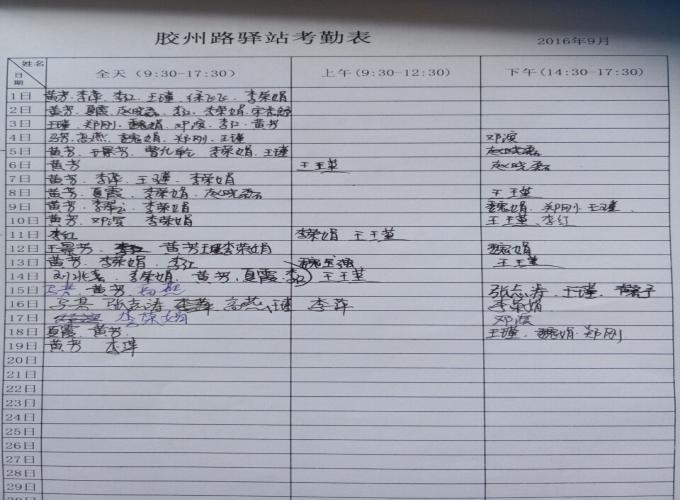 胶州路驿站考勤表
2016年9月
姓名 日期 全天（9:30-17:30） 上午(9:30-12:30) 下午(14:30-17:30)
1日 黄芳 李萍 李红 王瑾 徐飞飞 李荣娟
2日 黄芳 夏霞 赵晓磊 李红 李荣娟
3日 王瑾 郑刚 魏娟 邓滨 李红 黄芳
4日 高燕 魏娟 郑刚 王瑾 邓滨
5日 黄芳 王景芳 李荣娟 王瑾 赵晓磊
6日 黄芳 王瑾 赵晓磊
7日 黄芳 李萍 王瑾 李荣娟
8日 黄芳 夏霞 李荣娟 赵晓磊 王瑾
9日 黄芳 李荣娟 魏娟 郑刚 王瑾
10日 黄芳 邓滨 李荣娟 王瑾 李红
11日 李红 李荣娟 王瑾
12日 王景芳 李红 黄芳 王瑾 李荣娟 魏娟
13日 黄芳 李荣娟 李红 王瑾
14日 李荣娟 黄芳 夏霞 李红 王瑾
15日 黄芳 张志涛 王瑾
16日 张志涛 李萍 高燕 王瑾 李萍 李荣娟
17日 李荣娟 邓滨
18日 夏霞 黄芳 王瑾 魏娟 郑刚
19日 黄芳 李萍
20日
21日
22日
23日
24日
25日
26日
27日
28日
29日